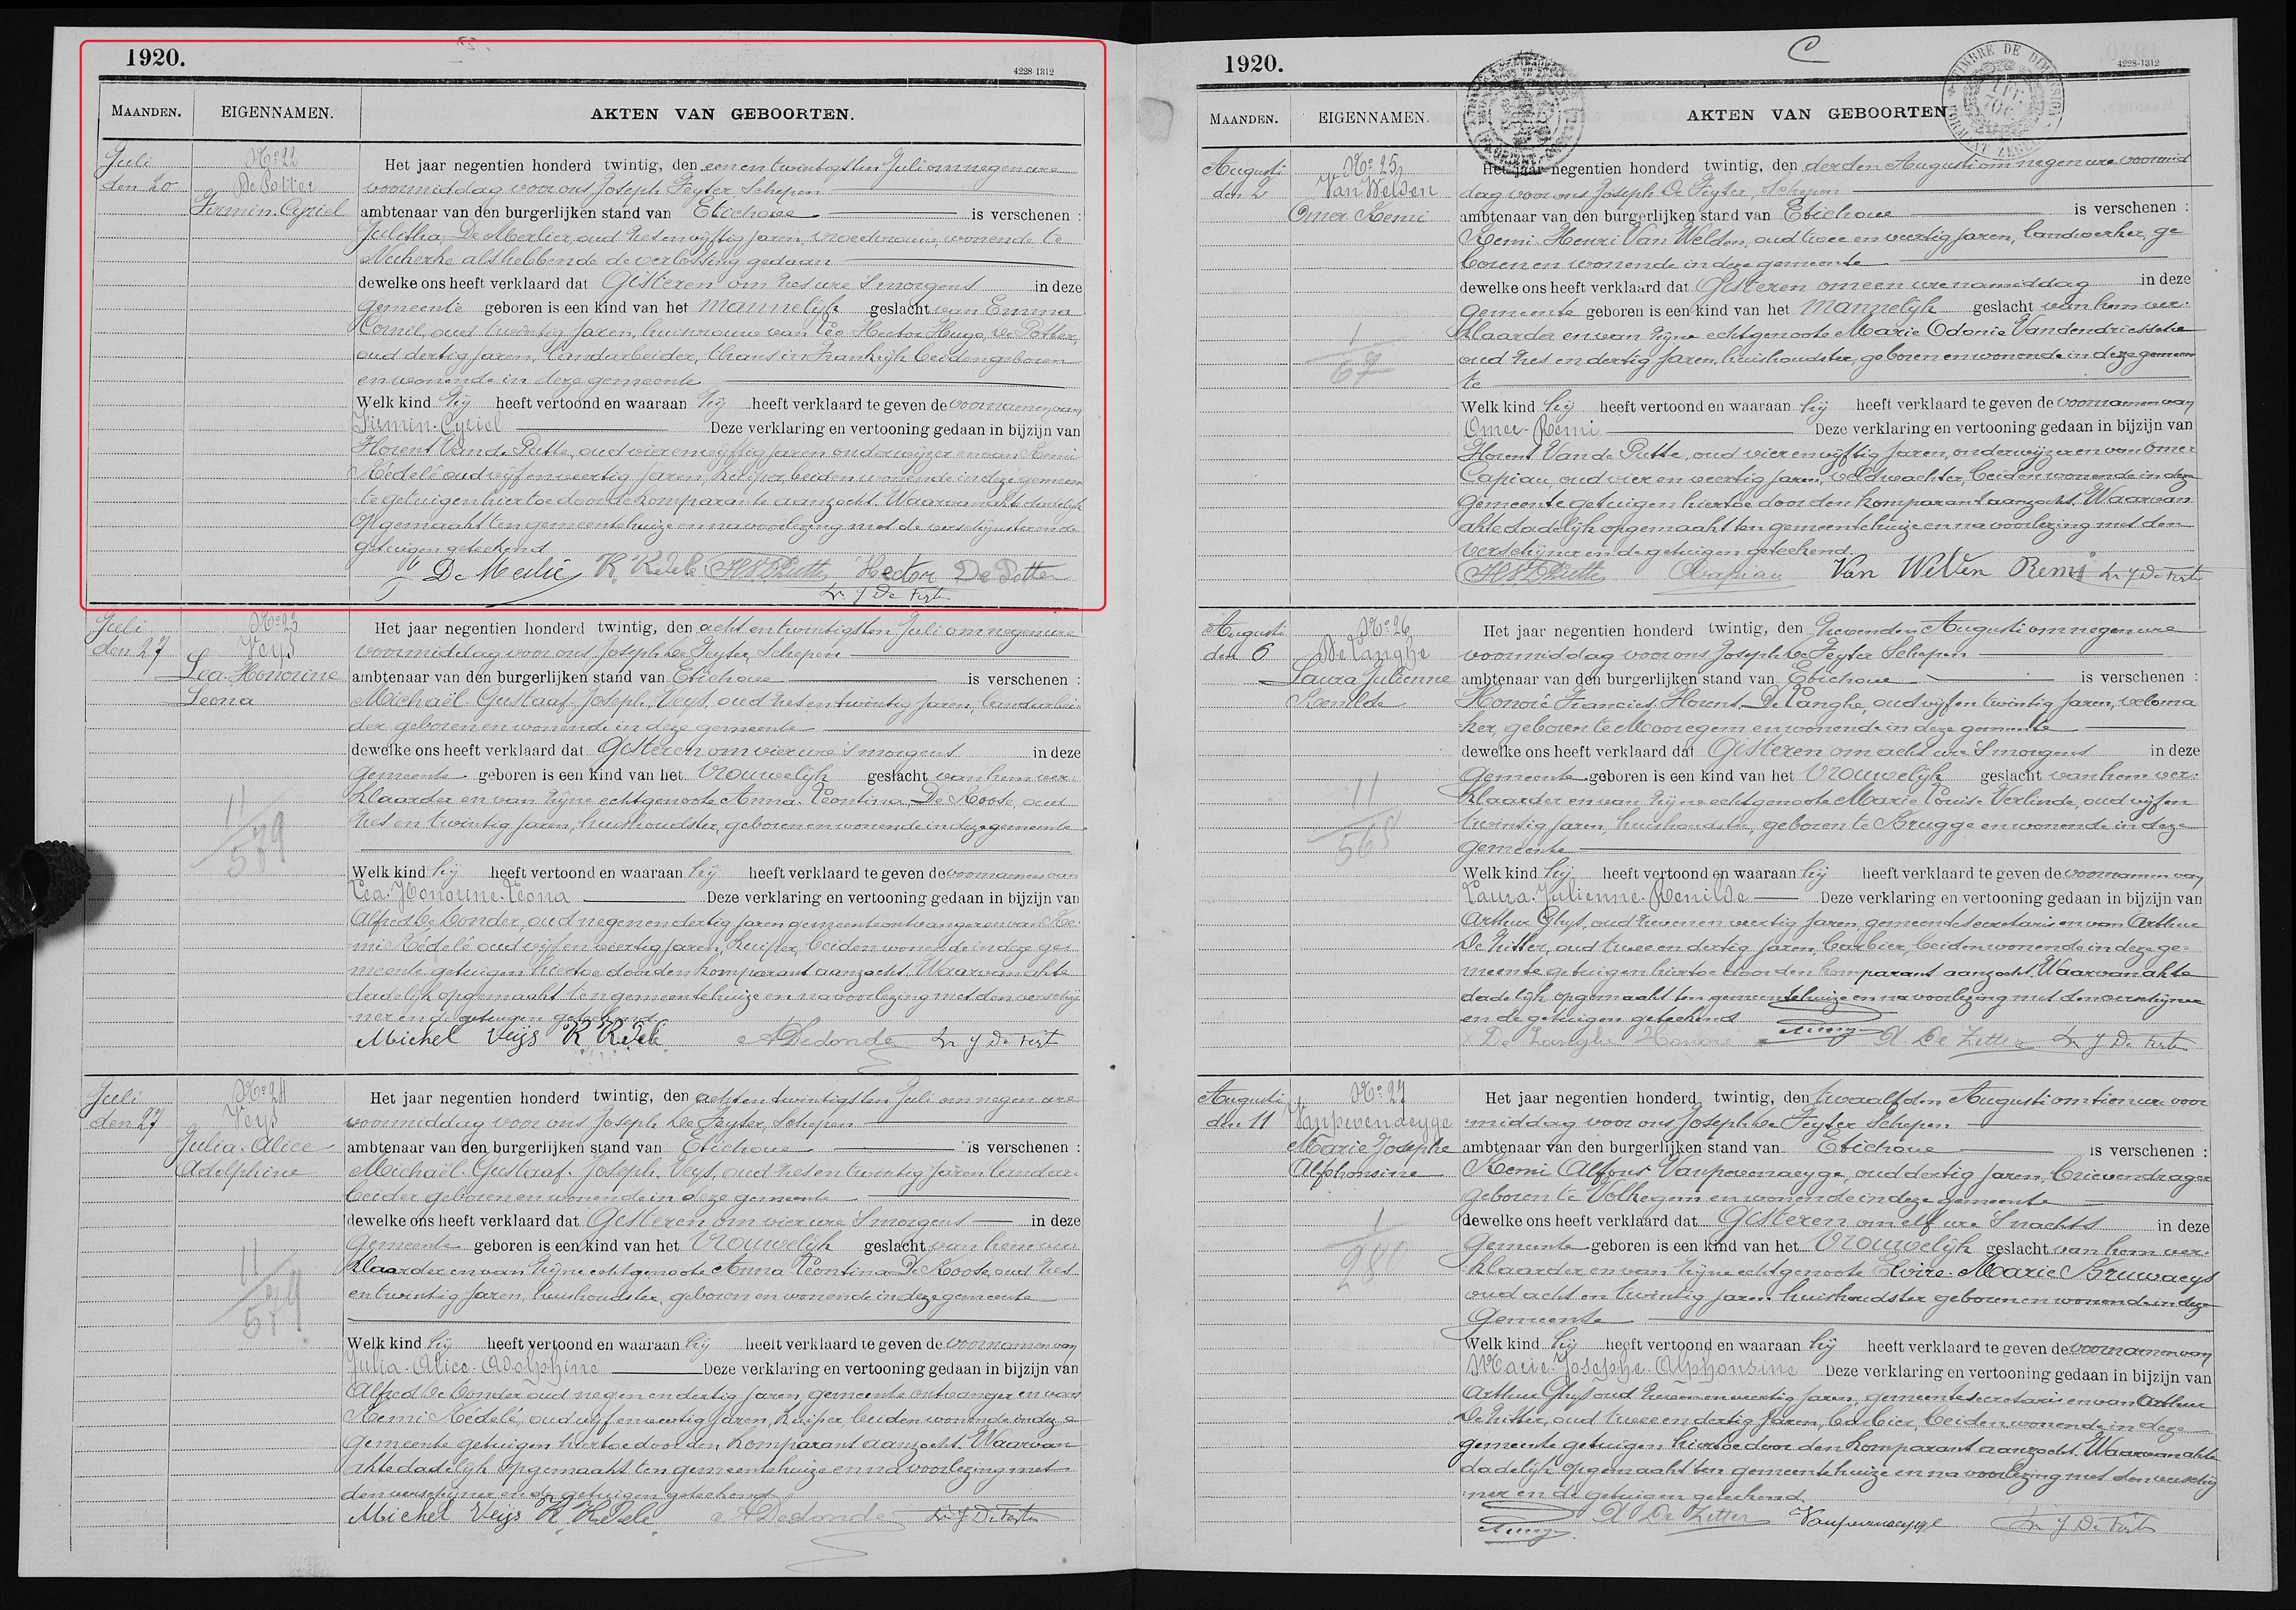 1920.
4228-1312
MAANDEN.
EIGENNAMEN.
AKTEN VAN GEBOORTEN.
Juli
den 20
No 22
De Potter
Firmin. Cyriel
Het jaar negentien honderd twintig, den eenentwintigsten Juli om negen ure
voormiddag voor ons Joseph De Feyter, Schepen
ambtenaar van den burgerlijken stand van Etichove is verschenen :
Julitha, De Merlier, oud zesenvijftig jaren, vroedvrouw, wonende te
Nukerke als hebbende de verlossing gedaan
dewelke ons heeft verklaard dat Gisteren om zes ure 's morgens in deze
Gemeente geboren is een kind van het mannelijk geslacht van Emma
Cornil, oud twintig jaren, huisvrouw van Leo Hector Hugo, De Potter,
oud dertig jaren, landarbeider, thans in Frankrijk beiden geboren
en wonende in deze gemeente
Welk kind zij heeft vertoond en waaraan zij heeft verklaard te geven de voornamen van
Firmin. Cyriel Deze verklaring en vertooning gedaan in bijzijn van
Florent Van de Putte, oud vierenvijftig jaren onderwijzer en van Remi
Kédélé oud vijfenveertig jaren, kuiper beiden wonende in deze gemeen
te getuigen hiertoe door de komparante aanzocht. Waarvan akte dadelijk
opgemaakt ten gemeentehuize en na voorlezing met de verschijnster en de
getuigen geteekend
Hector De Potter
Juli
den 27
No 23
Veys
Lea. Honorine
Leona
11
579
Het jaar negentien honderd twintig, den acht en twintigsten Juli om negen ure
voormiddag voor ons Joseph De Feyter, Schepen
ambtenaar van den burgerlijken stand van Etichove is verschenen :
Michaël. Gustaaf. Joseph. Veys, oud zesentwintig jaren, landarbei
der geboren en wonende in deze gemeente
dewelke ons heeft verklaard dat Gisteren om vier ure 's morgens in deze
Gemeente geboren is een kind van het Vrouwelijk geslacht van hem ver:
klaarder en van zijne echtgenoote Anna. Leontina, De Roose, oud
zes en twintig jaren, huishoudster, geboren en wonende in deze gemeente
Welk kind hij heeft vertoond en waaraan hij heeft verklaard te geven de voornamen van
Lea. Honorine. Leona Deze verklaring en vertooning gedaan in bijzijn van
Alfred De Donder, oud negenendertig jaren gemeenteontvanger en van Re-
mi Kédélé oud vijf en veertig jaren, Kuiper, beiden wonende in deze ge:
meente getuigen hiertoe door den komparant aanzocht. Waarvan akte
dadelijk opgemaakt ten gemeentehuize en na voorlezing met den verschij
ner en de getuigen geteekend.
Michel Veijs
Juli
den 27
No 24
Veys
Julia. Alice
Adolphine
11
579
Het jaar negentien honderd twintig, den acht en twintigsten Juli om negen ure
voormiddag voor ons Joseph De Feyter, Schepen
ambtenaar van den burgerlijken stand van Etichove is verschenen :
Michaël. Gustaaf. Joseph. Veys, oud zes en twintig jaren landar:
beider geboren en wonende in deze gemeente
dewelke ons heeft verklaard dat Gisteren om vier ure 's morgens in deze
Gemeente geboren is een kind van het Vrouwelijk geslacht van hem ver:
klaarder en van zijne echtgenoote Anna Leontina De Roose, oud zes
en twintig jaren, huishoudster, geboren en wonende in deze gemeente
Welk kind hij heeft vertoond en waaraan hij heeft verklaard te geven de voornamen van
Julia. Alice. Adolphine Deze verklaring en vertooning gedaan in bijzijn van
Alfred De Donder oud negen en dertig jaren, gemeente ontvanger en van
Remi Kédélé, oud vijf en veertig jaren, Kuiper beiden wonende in deze
Gemeente getuigen hiertoe door den komparant aanzocht. Waarvan
akte dadelijk opgemaakt ten gemeentehuize en na voorlezing met
den verschijner en de getuigen geteekend
Michel Veijs
1920.
4228-1312
MAANDEN.
EIGENNAMEN.
AKTEN VAN GEBOORTEN
Augusti
den 2
No 25
Van Welden
Omer Remi
1
67
Het jaar negentien honderd twintig, den derden Augusti om negen ure voormid
dag voor ons Joseph De Feyter, Schepen
ambtenaar van den burgerlijken stand van Etichove is verschenen :
Remi. Henri Van Welden, oud twee en veertig jaren, landwerker, ge
boren en wonende in deze gemeente
dewelke ons heeft verklaard dat Gisteren om een ure namiddag in deze
Gemeente geboren is een kind van het Mannelijk geslacht van hem ver:
klaarder en van zijne echtgenoote Marie Odonie Vandendriessche
oud zes en dertig jaren, huishoudster, geboren en wonende in deze gemeen
te
Welk kind hij heeft vertoond en waaraan hij heeft verklaard te geven de voornamen van
Omer-Remi Deze verklaring en vertooning gedaan in bijzijn van
Florent Van de Putte, oud vierenvijftig jaren, onderwijzer en van Omer
Capiau, oud vier en veertig jaren, veldwachter, beiden wonende in deze
Gemeente getuigen hiertoe door den komparant aanzocht. Waarvan
akte dadelijk opgemaakt ten gemeentehuize en na voorlezing met den
verschijner en de getuigen geteekend.
Capiau Van Welden Remi
Augusti
den 6
No 26
De Langhe
Laura Julienne
Renilde
11
568
Het jaar negentien honderd twintig, den zevenden Augusti om negen ure
voormiddag voor ons Joseph De Feyter Schepen
ambtenaar van den burgerlijken stand van Etichove is verschenen :
Honoré Francies. Florent. De Langhe, oud vijf en twintig jaren, veloma
ker, geboren te Mooregem en wonende in deze gemeente
dewelke ons heeft verklaard dat Gisteren om acht ure 's morgens in deze
Gemeente geboren is een kind van het Vrouwelijk geslacht van hem ver:
klaarder en van zijne echtgenoote Marie Louise Verlinde, oud vijf en
twintig jaren, huishoudster, geboren te Brugge en wonende in deze
gemeente
Welk kind hij heeft vertoond en waaraan hij heeft verklaard te geven de voornamen van
Laura. Julienne. Renilde Deze verklaring en vertooning gedaan in bijzijn van
Arthur Ghys, oud zeven en veertig jaren, gemeentesecretaris en van Arthur
De Zitter, oud twee en dertig jaren, barbier, beiden wonende in deze ge:
meente getuigen hiertoe door den komparant aanzocht. Waarvan akte
dadelijk opgemaakt ten gemeentehuize en na voorlezing met den verschijner
en de getuigen geteekend
De Langhe Honoré A. De Zitter
Augusti
den 11
No 27
Vanpevenaeyge
Marie Josephe
Alphonsine
1
280
Het jaar negentien honderd twintig, den twaalfden Augusti om tien ure voor
middag voor ons Joseph De Feyter Schepen
ambtenaar van den burgerlijken stand van Etichove is verschenen :
Remi Alfons Vanpevenaeyge, oud dertig jaren, brievendrager
geboren te Volkegem en wonende in deze gemeente
dewelke ons heeft verklaard dat Gisteren om elf ure 's nachts in deze
Gemeente geboren is een kind van het Vrouwelijk geslacht van hem ver:
klaarder en van zijne echtgenoote Elvire. Marie Bruwaeys
oud acht en twintig jaren huishoudster geboren en wonende in deze
Gemeente
Welk kind hij heeft vertoond en waaraan hij heeft verklaard te geven de voornamen van
Marie. Josephe. Alphonsine Deze verklaring en vertooning gedaan in bijzijn van
Arthur Ghys oud zeven en veertig jaren, gemeentesecretaris en van Arthur
De Zitter, oud twee en dertig jaren, barbier, beiden wonende in deze
gemeente getuigen hiertoe door den komparant aanzocht. Waarvan akte
dadelijk opgemaakt ten gemeentehuize en na voorlezing met den verschij
ner en de getuigen geteekend.
A De Zitter Vanpevenaeyge